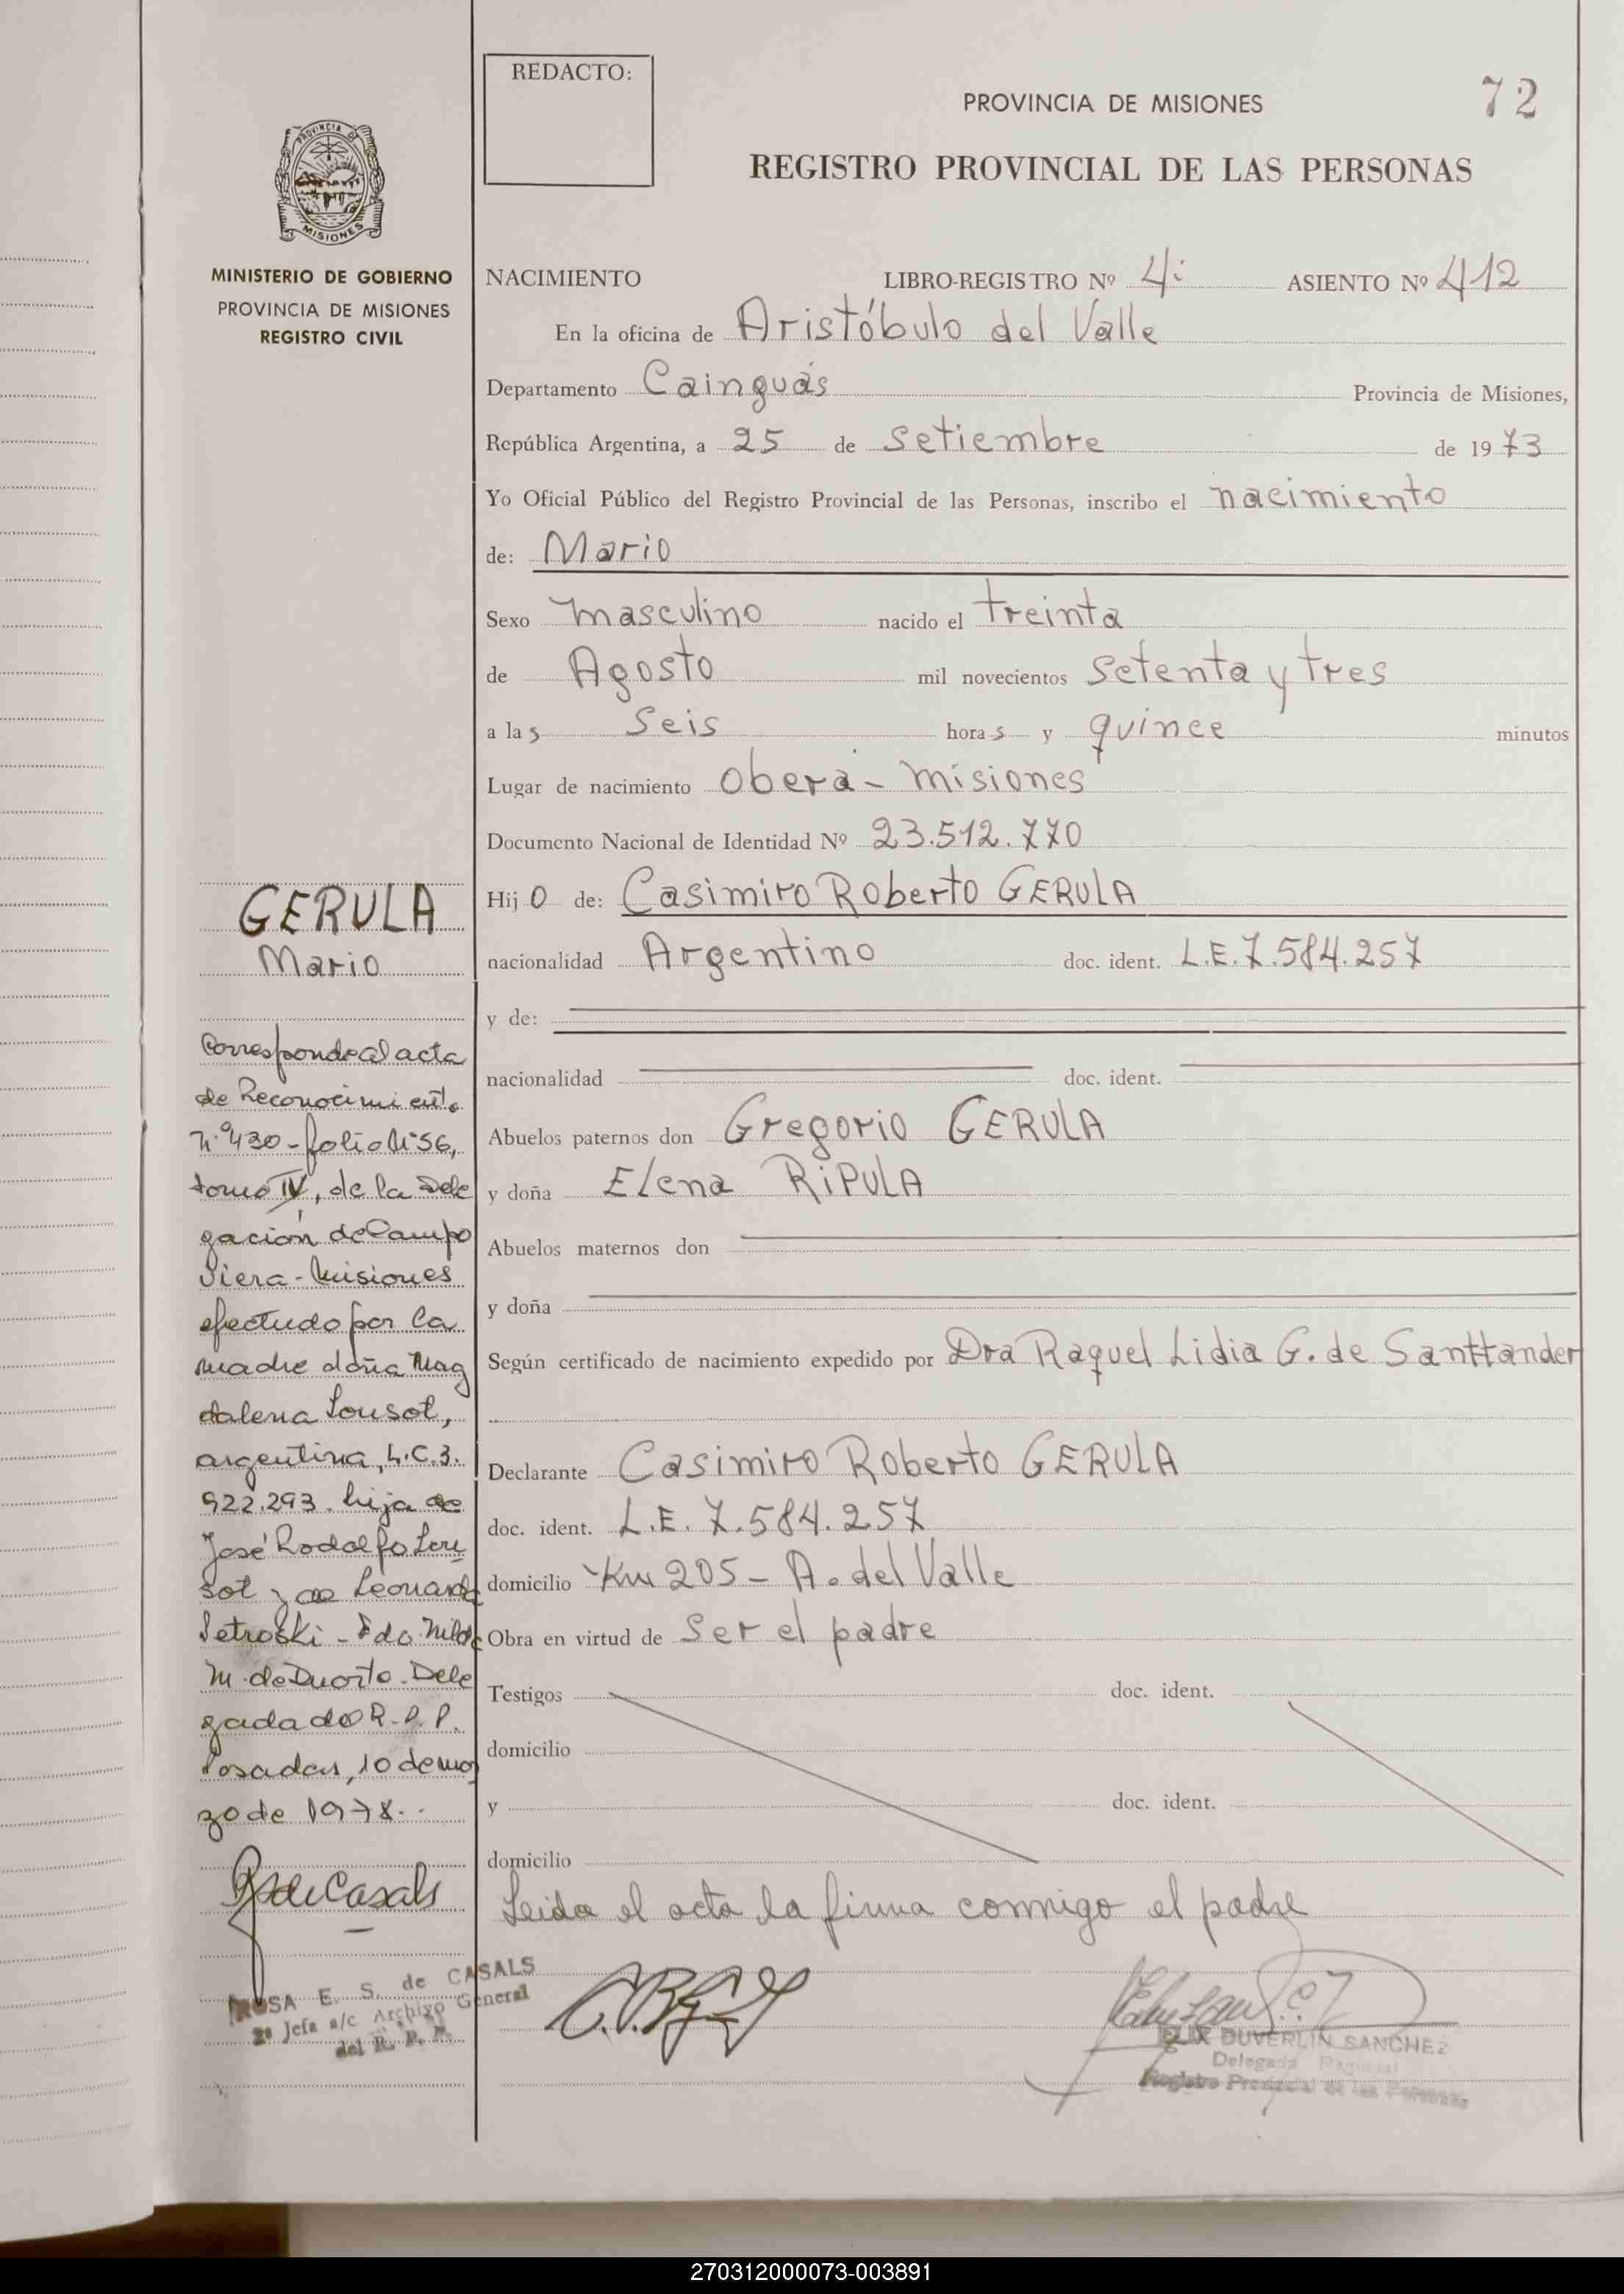 REDACTO:
PROVINCIA DE MISIONES
72
REGISTRO PROVINCIAL DE LAS PERSONAS
PROVINCIA DE
MISIONES
MINISTERIO DE GOBIERNO
PROVINCIA DE MISIONES
REGISTRO CIVIL
NACIMIENTO LIBRO-REGISTRO Nº 4: ASIENTO Nº 412
En la oficina de Aristóbulo del Valle
Departamento Cainguás Provincia de Misiones,
República Argentina, a 25 de setiembre de 1973
Yo Oficial Público del Registro Provincial de las Personas, inscribo el nacimiento
de: Mario
Sexo masculino nacido el treinta
de Agosto mil novecientos setenta y tres
a las seis horas y quince minutos
Lugar de nacimiento Oberá - misiones
Documento Nacional de Identidad Nº 23.512.770
Hijo de: Casimiro Roberto GERULA
nacionalidad Argentino doc. ident. L.E. 7.584.257
y de:
nacionalidad doc. ident.
Abuelos paternos don Gregorio GERULA
y doña Elena RiPULA
Abuelos maternos don
y doña
Según certificado de nacimiento expedido por Dra Raquel Lidia G. de Santtander
Declarante Casimiro Roberto GERULA
doc. ident. L.E. 7.584.257
domicilio Km 205 - A. del Valle
Obra en virtud de ser el padre
Testigos doc. ident.
domicilio
y doc. ident.
domicilio
Leida el acta la firma conmigo el padre
GERULA
Mario
Corresponde al acta
de Reconocimiento
n.º 430 - folio Nº 56,
tomo IV, de la Dele
gación de Campo
Viera - Misiones
efectudo por la
madre doña Mag
dalena Lousot,
argentina, L.C. 3.
922.293. hija de
José Rodolfo Lou
sot y de Leonarda
Petroski - Fdo. Nilda
M. de Duarte. Dele
gada do R. P. P.
Posadas, 10 de mar
zo de 1978.
ROSA E. S. de CASALS
2ª Jefa a/c Archivo General
del R. P. P.
FELIX DUVERLIN SANCHEZ
Delegado Regional
Registro Provincial de las Personas
270312000073-003891